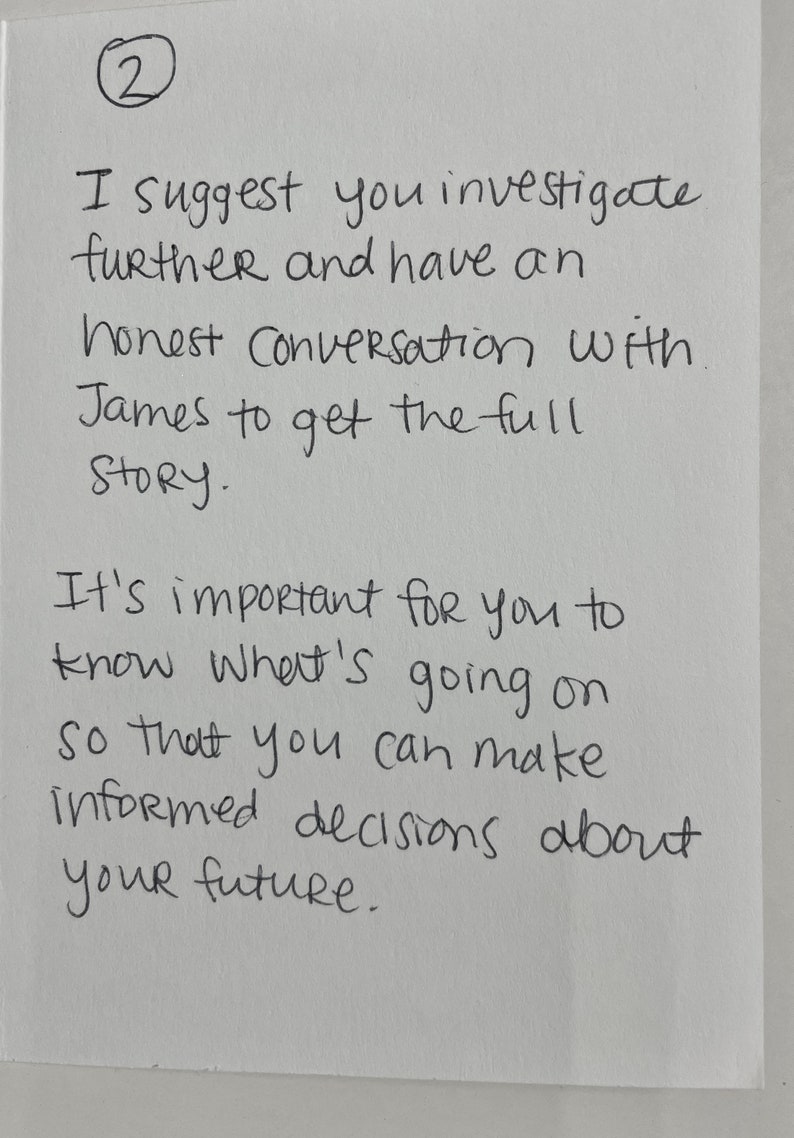 2
I suggest you investigate
further and have an
honest conversation with
James to get the full
story.
It's important for you to
know what's going on
so that you can make
informed decisions about
your future.